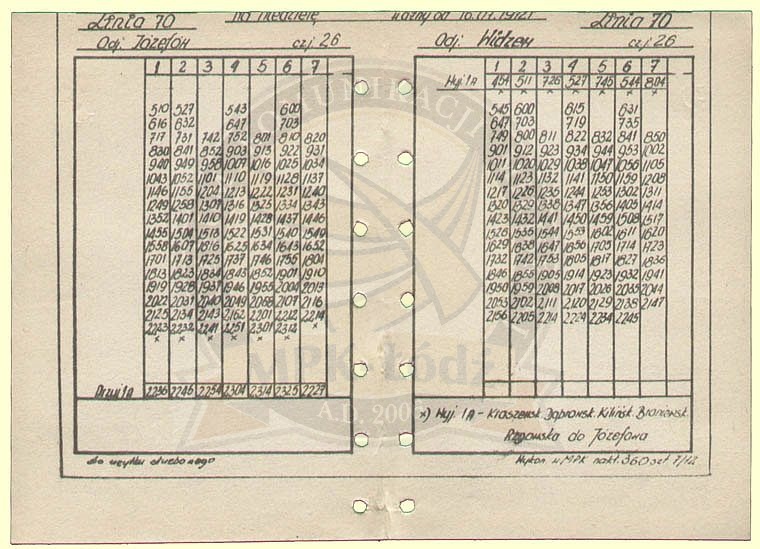 Linia 70 na niedzielę ważny od 16.07.1972r Linia 70
Odj. Józefów czj 26 Odj. Widzew czj 26
1 2 3 4 5 6 7
510 527 543 600
616 632 647 703
717 731 742 752 801 810 820
830 841 852 903 913 922 931
940 949 958 1007 1016 1025 1034
1043 1052 1101 1110 1119 1128 1137
1146 1155 1204 1213 1222 1231 1240
1249 1258 1307 1316 1325 1334 1343
1352 1401 1410 1419 1428 1437 1446
1455 1504 1513 1522 1531 1540 1549
1558 1607 1616 1625 1634 1643 1652
1701 1713 1725 1737 1746 1755 1804
1813 1823 1834 1843 1852 1901 1910
1919 1928 1937 1946 1955 2004 2013
2022 2031 2040 2049 2058 2107 2116
2125 2134 2143 2152 2201 2212 2214
2223 2232 2241 2251 2301 2312 x
x x x x x x
2236 2246 2254 2304 2314 2325 2227
1 2 3 4 5 6 7
Wyj. 1A 454 511 726 527 745 544 804
x x x x x x x
545 600 615 631
647 703 719 735
749 800 811 822 832 841 850
901 912 923 934 944 953 1002
1011 1020 1029 1038 1047 1056 1105
1114 1123 1132 1141 1150 1159 1208
1217 1226 1235 1244 1253 1302 1311
1320 1329 1338 1347 1356 1405 1414
1423 1432 1441 1450 1459 1508 1517
1526 1535 1544 1553 1602 1611 1620
1629 1638 1647 1656 1705 1714 1723
1732 1742 1753 1805 1817 1827 1836
1846 1855 1905 1914 1923 1932 1941
1950 1959 2008 2017 2026 2035 2044
2053 2102 2111 2120 2129 2138 2147
2156 2205 2214 2224 2234 2245
x) Wyj. 1A - Kraszewsk. Dąbrowsk. Kilińsk. Broniewsk.
Rzgowska do Józefowa
do użytku służbowego
Wykon. w MPK nakł. 360 szt 7/72
KOMUNIKACJI
MPK-Łódź
A.D. 200